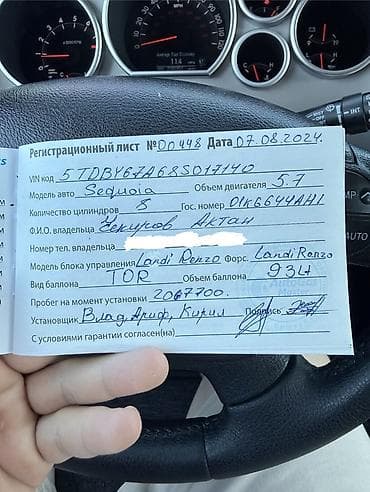 Регистрационный лист №00448 Дата 07.08.2024.
VIN код 5TDBY67A68S017140
Модель авто Sequoia Объем двигателя 5.7
Количество цилиндров 8 Гос. номер 01KG644AHI
Ф.И.О. владельца Чекиров Актан
Номер тел. владельца
Модель блока управления Landi Renzo Форс. Landi Renzo
Вид баллона TOR Объем баллона 93л
Пробег на момент установки 2067700.
Установщик Влад, Ариф, Кирил Подпись
С условиями гарантии согласен(на)
INT
AMP